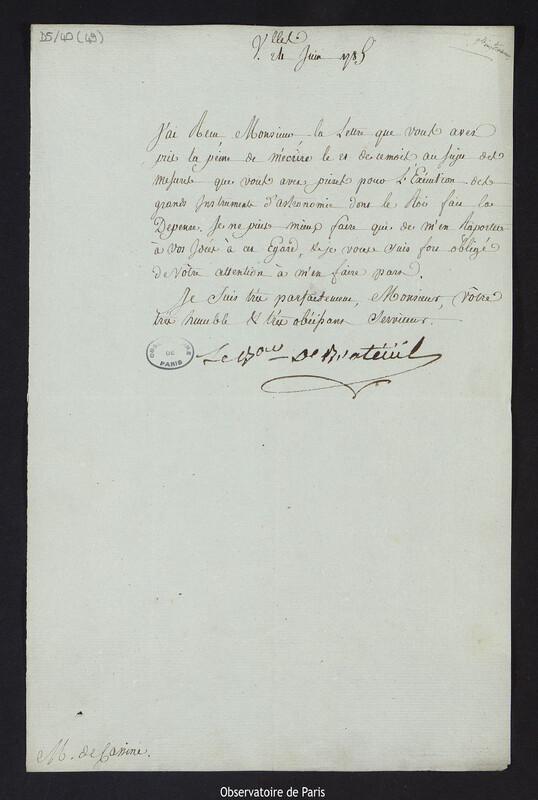 D5/40 (49)
V.lles
24 Juin 1785
J'ai Recu Monsieur la Lettre que vous avez
pris la peine de m'écrire le 21 de ce mois, au Sujet des
mesures que vous avez prises pour L'Exécution des
grands Instruments d'astronomie dont le Roi fait la
Depense. Je ne puis mieux faire que de m'en Raporter
à vos soins à cet Egard, & je vous suis fort obligé
de votre attention à m'en faire part.
Je Suis très parfaitement, Monsieur, Votre
très humble & très obéissant Serviteur.
Le Bon De Breteüil
OBSERVATOIRE
DE
PARIS
M. de Cassini.
Observatoire de Paris